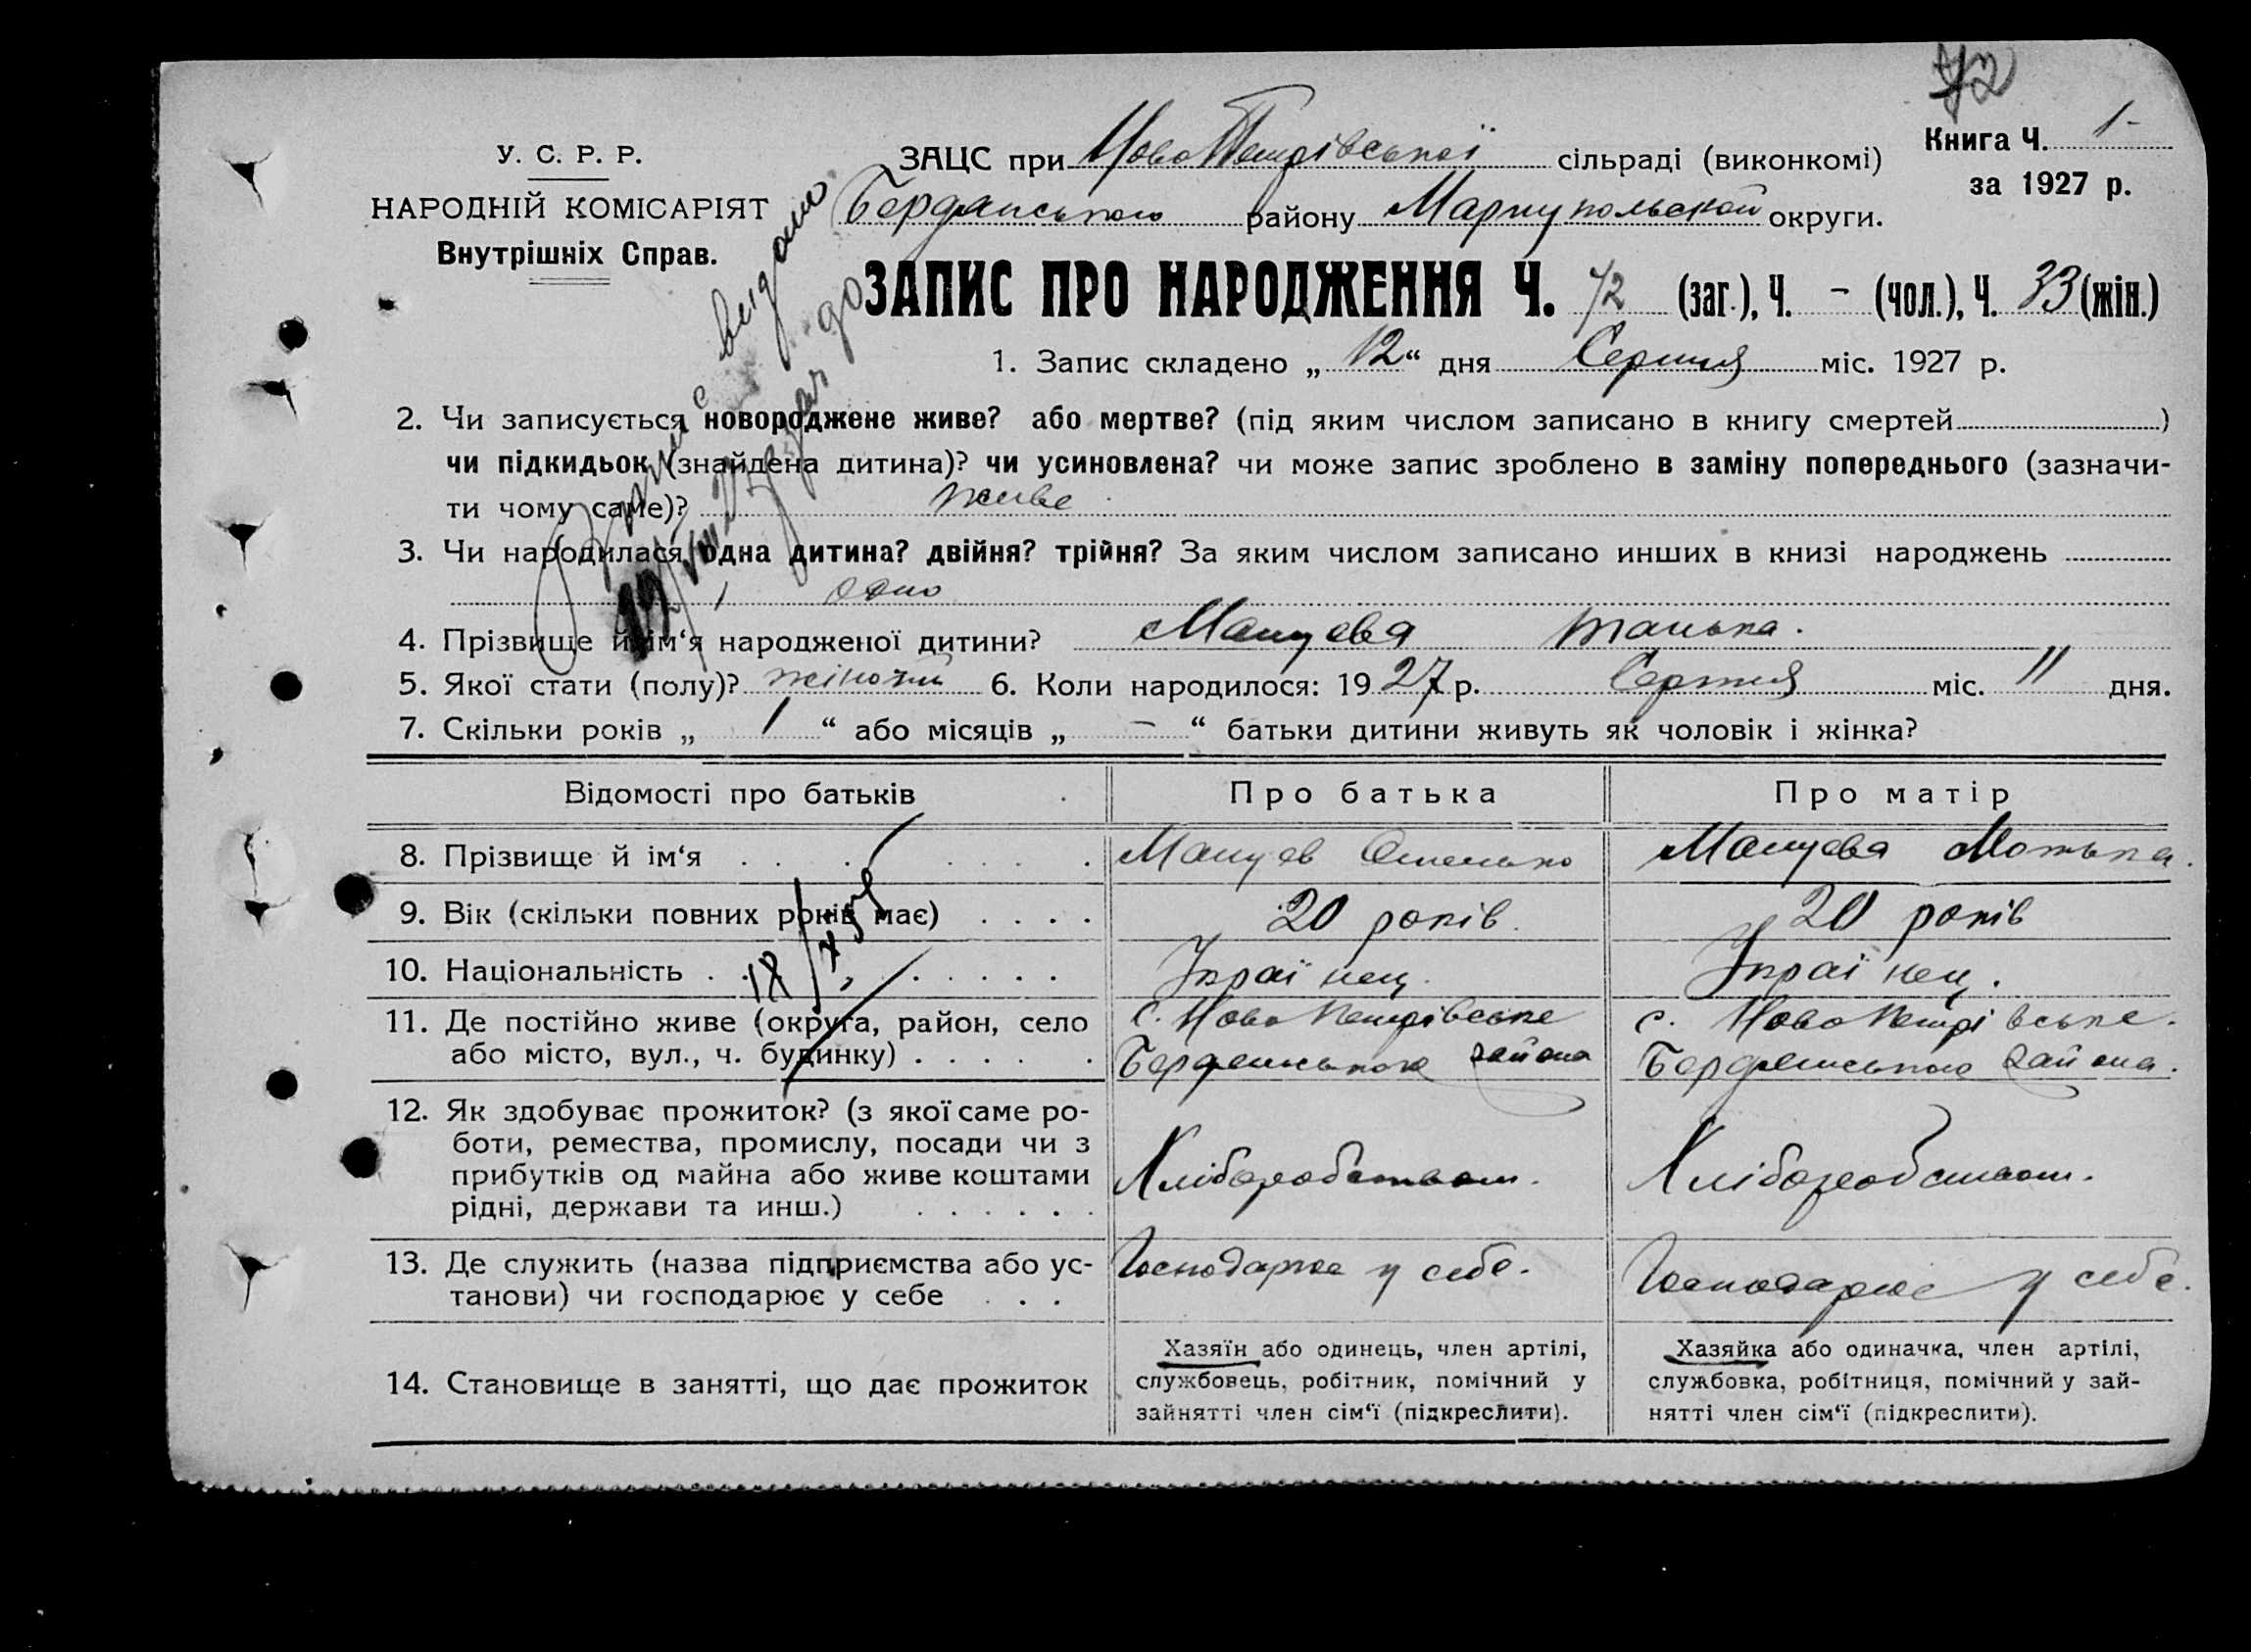 72
У. С. Р. Р.
НАРОДНІЙ КОМІСАРІЯТ
Внутрішніх Справ.
ЗАЦС при НовоПетрівської сільраді (виконкомі)
Книга Ч. 1-
за 1927 р.
Бердянського району Мариупольской округи.
ЗАПИС ПРО НАРОДЖЕННЯ Ч. 72 (заг.), Ч. - (чол.), Ч. 33 (жін.)
1. Запис складено „ 12 “ дня Серпня міс. 1927 р.
2. Чи записується новороджене живе? або мертве? (під яким числом записано в книгу смертей )
чи підкидьок (знайдена дитина)? чи усиновлена? чи може запис зроблено в заміну попереднього (зазначи-
ти чому саме)? живе
3. Чи народилася одна дитина? двійня? трійня? За яким числом записано инших в книзі народжень
1 одно
4. Прізвище й ім‘я народженої дитини? Мацуева Танька.
5. Якої стати (полу)? жіночій 6. Коли народилося: 1927 р. Серпня міс. 11 дня.
7. Скільки років „ 1 “ або місяців „ - “ батьки дитини живуть як чоловік і жінка?
Відомості про батьків Про батька Про матір
8. Прізвище й ім‘я Мацуев Омелько Мацуева Мотька.
9. Вік (скільки повних років має) 20 років. 20 років
10. Національність Украї нец. Украї нец.
11. Де постійно живе (округа, район, село с. Ново Петрівське с. Ново Петрі вське.
або місто, вул., ч. будинку) Бердянського района Бердянського района.
12. Як здобуває прожиток? (з якої саме ро-
боти, ремества, промислу, посади чи з
прибутків од майна або живе коштами Хліборобством. Хліборобством.
рідні, держави та инш.)
13. Де служить (назва підприємства або ус- Господарює у себе. Господарює у себе.
танови) чи господарює у себе
14. Становище в занятті, що дає прожиток
Хазяїн або одинець, член артілі,
службовець, робітник, помічний у
зайнятті член сім‘ї (підкреслити).
Хазяйка або одиначка, член артілі,
службовка, робітниця, помічний у зай-
нятті член сім‘ї (підкреслити).